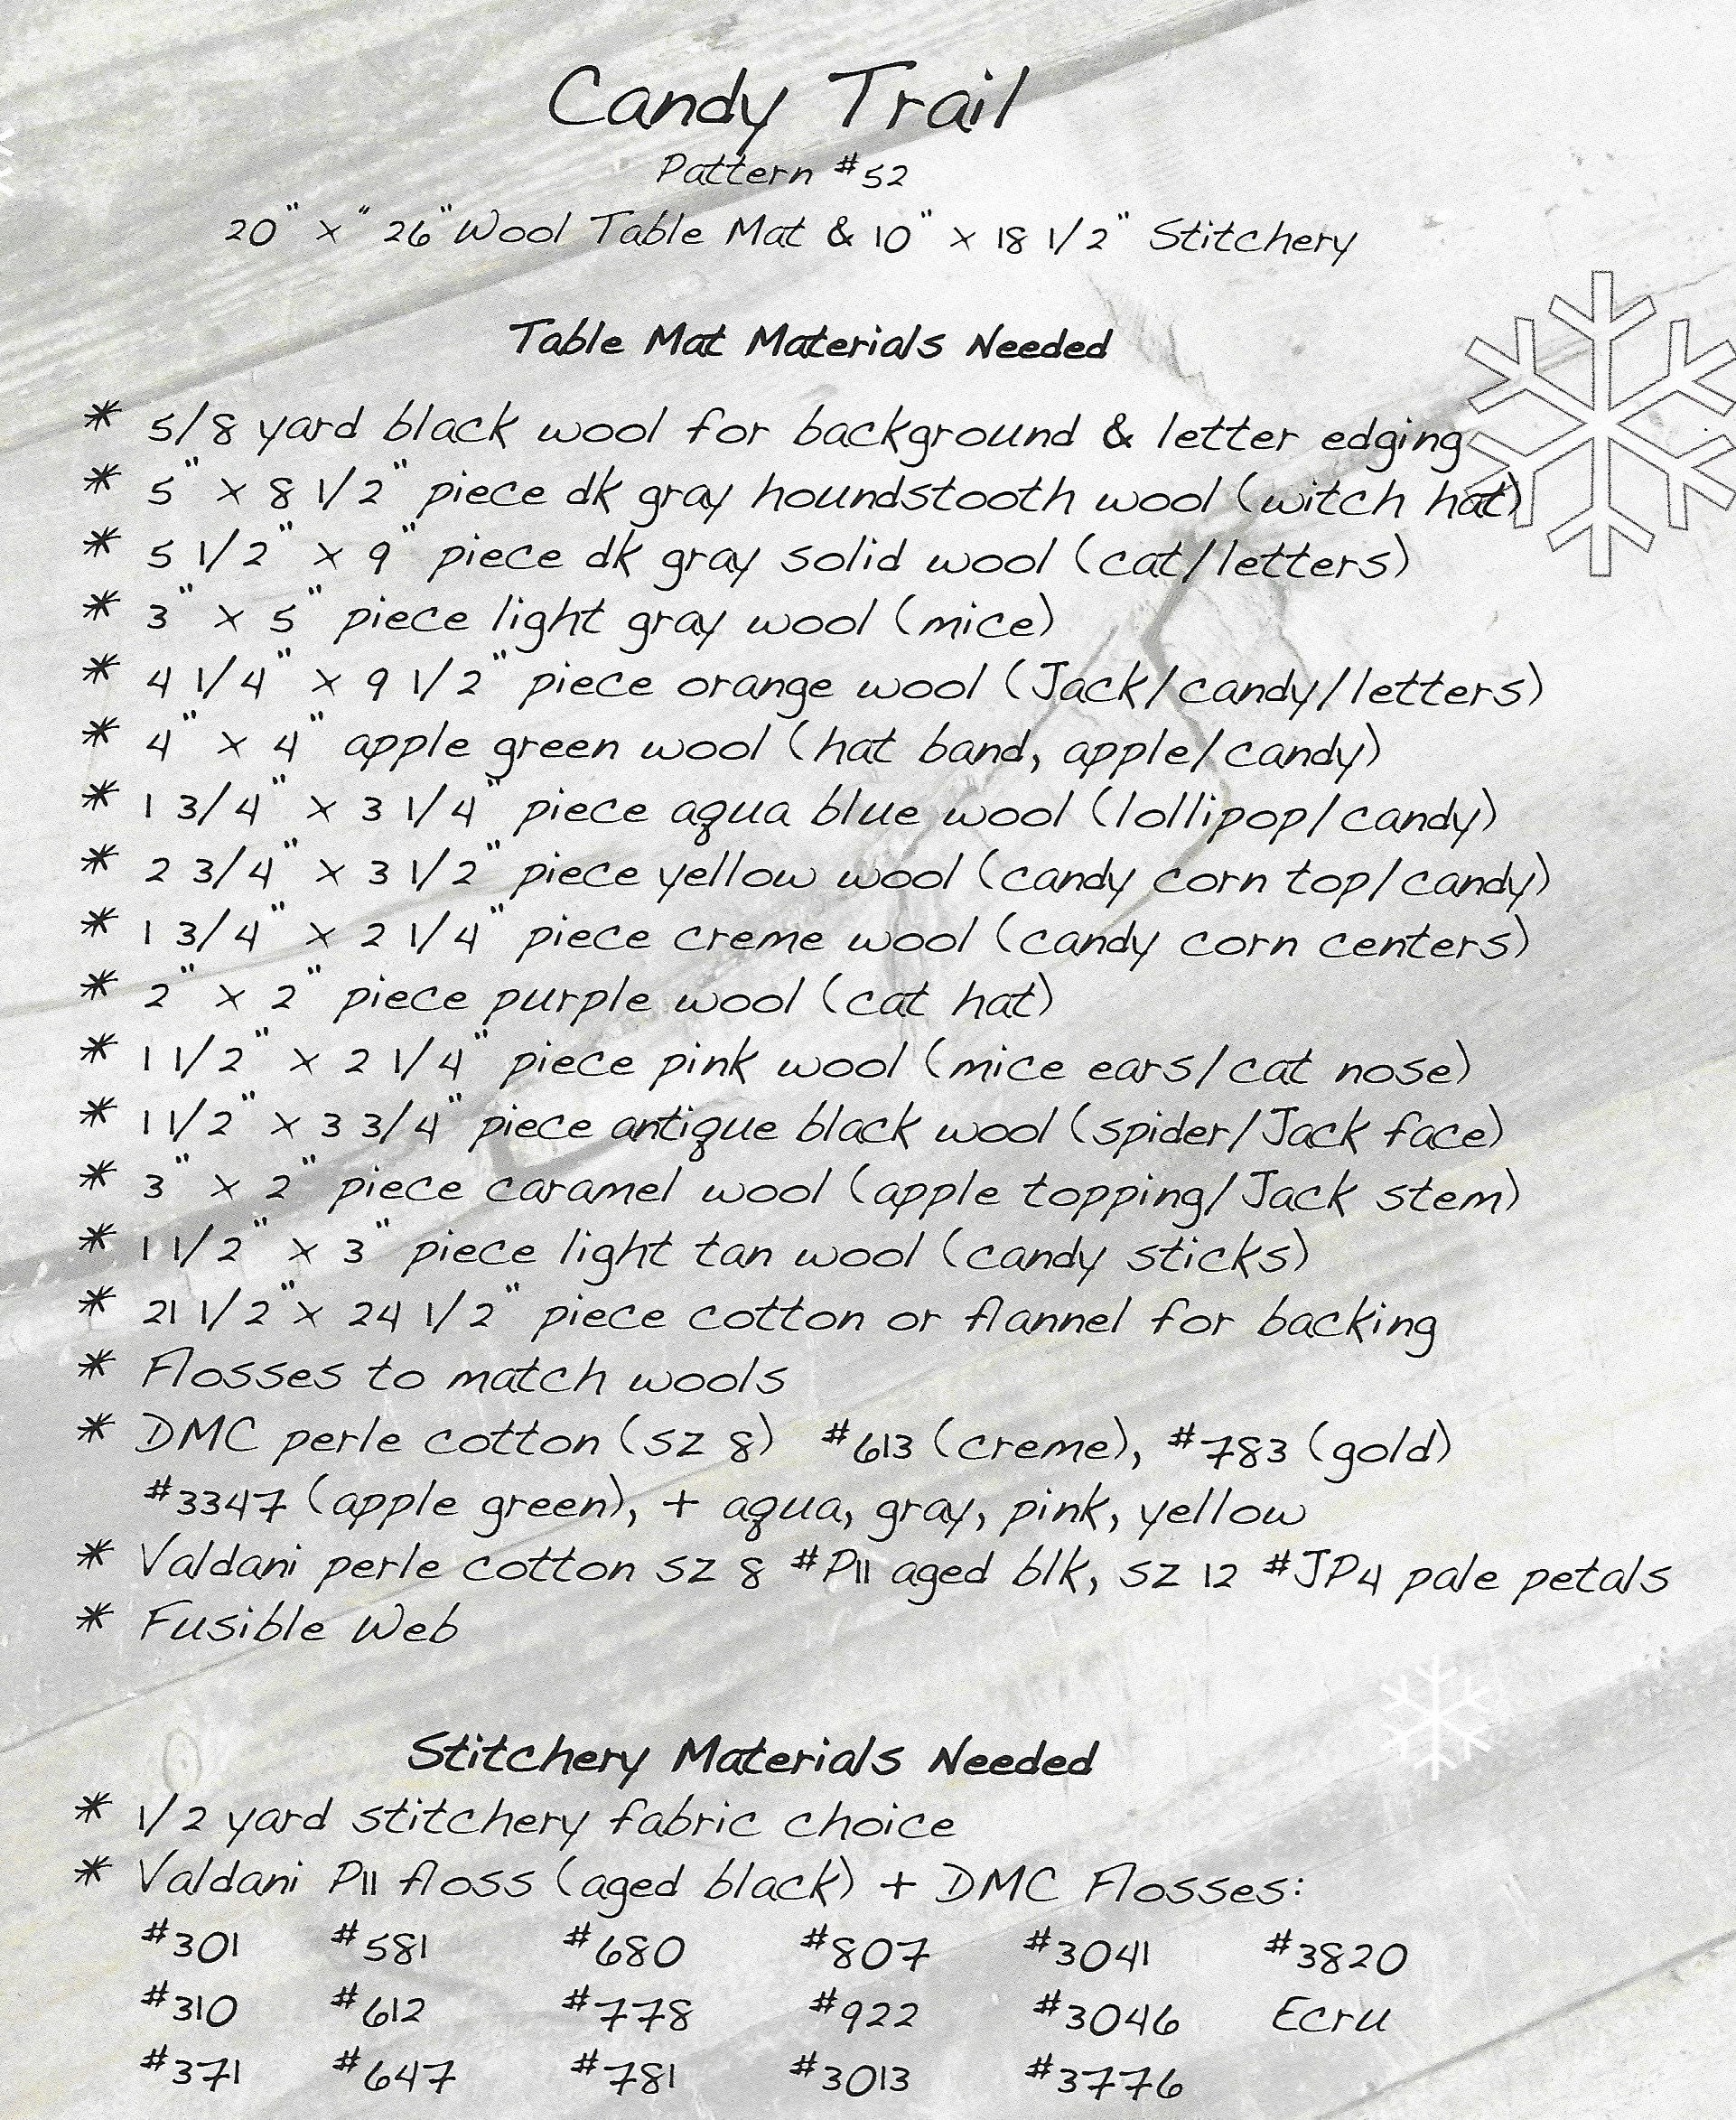 Candy Trail
Pattern #52
20" x" 26" Wool Table Mat & 10" x 18 1/2" Stitchery
Table Mat Materials Needed
* 5/8 yard black wool for background & letter edging
* 5" x 8 1/2" piece dk gray houndstooth wool (witch hat)
* 5 1/2" x 9" piece dk gray solid wool (cat/letters)
* 3" x 5" piece light gray wool (mice)
* 4 1/4" x 9 1/2" piece orange wool (Jack/candy/letters)
* 4" x 4" apple green wool (hat band, apple/candy)
* 1 3/4" x 3 1/4" piece aqua blue wool (lollipop/candy)
* 2 3/4" x 3 1/2" piece yellow wool (candy corn top/candy)
* 1 3/4" x 2 1/4" piece creme wool (candy corn centers)
* 2" x 2" piece purple wool (cat hat)
* 1 1/2" x 2 1/4" piece pink wool (mice ears/cat nose)
* 1 1/2" x 3 3/4" piece antique black wool (spider/Jack face)
* 3" x 2" piece caramel wool (apple topping/Jack stem)
* 1 1/2" x 3" piece light tan wool (candy sticks)
* 21 1/2" x 24 1/2" piece cotton or flannel for backing
* Flosses to match wools
* DMC perle cotton (sz 8) #613 (creme), #783 (gold)
#3347 (apple green), + aqua, gray, pink, yellow
* Valdani perle cotton sz 8 #P11 aged blk, sz 12 #JP4 pale petals
* Fusible Web
Stitchery Materials Needed
* 1/2 yard stitchery fabric choice
* Valdani P11 floss (aged black) + DMC Flosses:
#301 #581 #680 #807 #3041 #3820
#310 #612 #778 #922 #3046 Ecru
#371 #647 #781 #3013 #3776